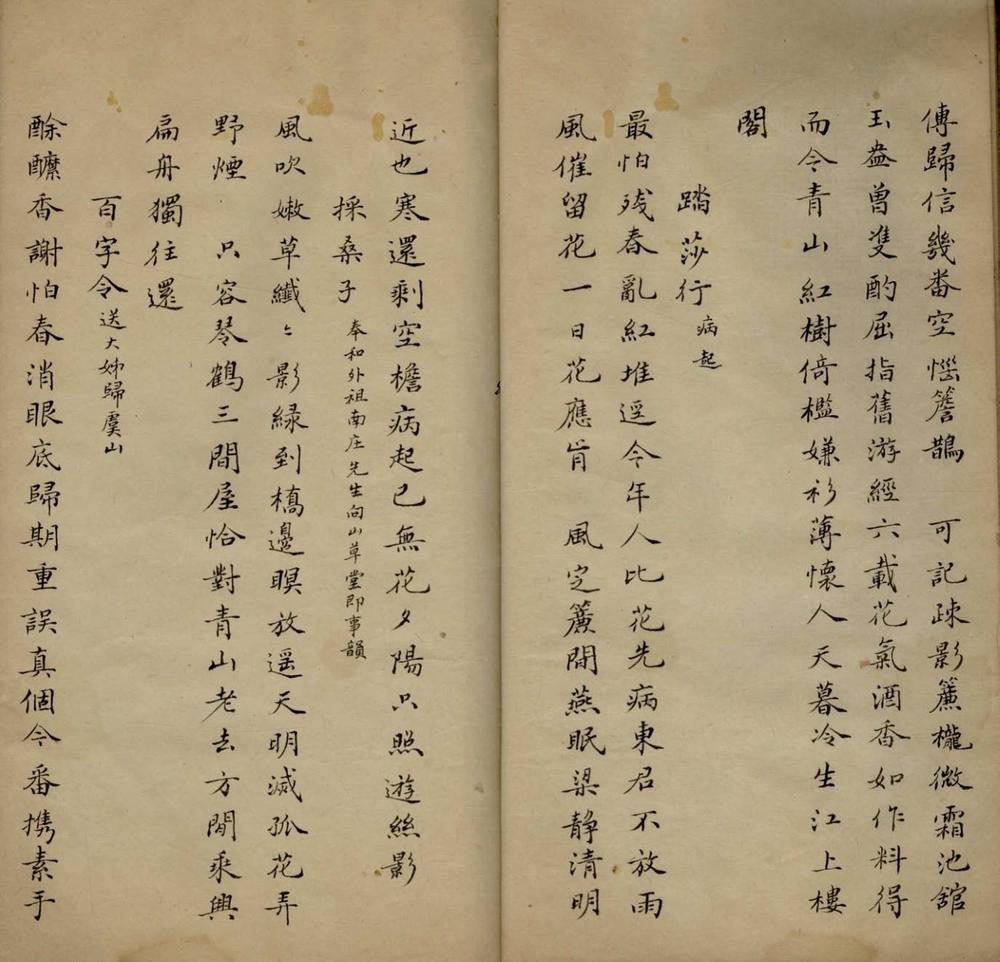 傳歸信幾番空惱簷鵲　可記疎影簾櫳微霜池舘
玉盎曾雙酌屈指舊游經六載花氣酒香如作料得
而令青山紅樹倚檻嫌衫薄懷人天暮冷生江上樓
閣
踏莎行病起
最怕残春亂紅堆逕今年人比花先病東君不放雨
風催留花一日花應肯　風定簾間燕眠梁静清明
近也寒還剩空檐病起已無花夕陽只照遊絲影
採桑子奉和外祖南庄先生向山草堂即事韻
風吹嫩草纖〻影緑到橋邊暝放遥天明滅孤花弄
野煙　只容琴鶴三間屋恰對青山老去方閒乘興
扁舟獨往還
百字令送大姊歸虞山
酴醿香謝怕春消眼底歸期重誤真個今番携素手